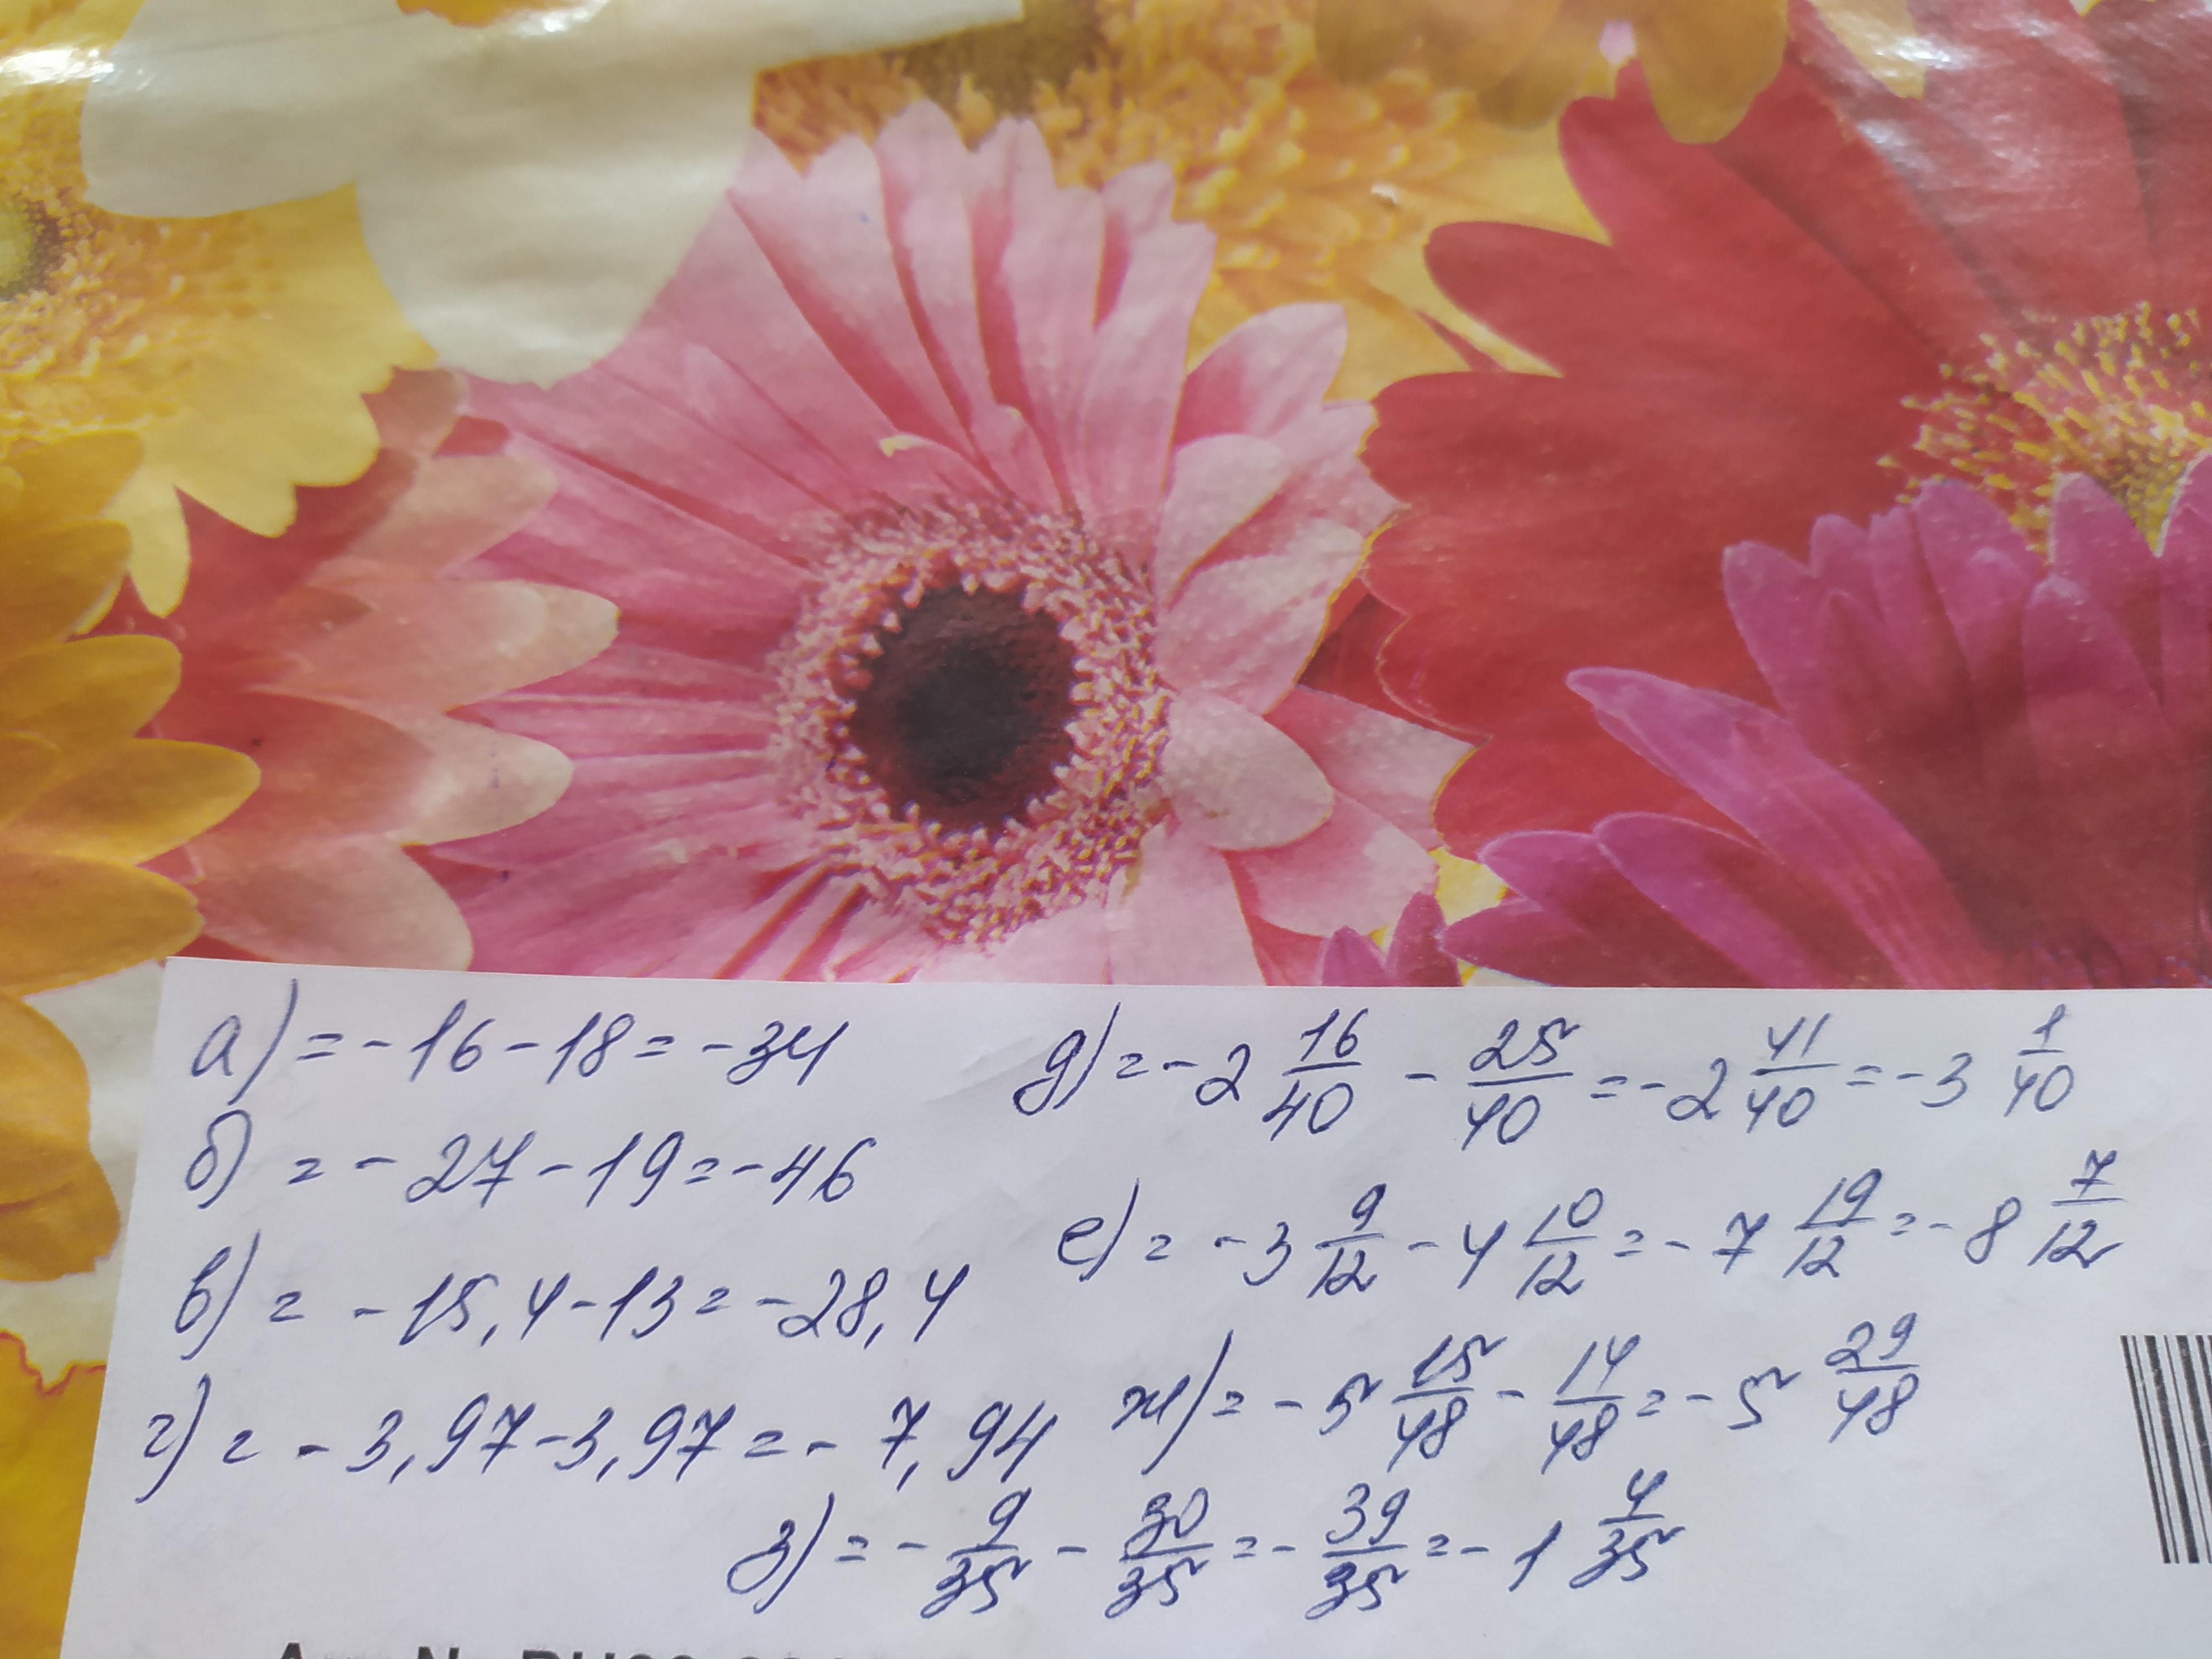 а) = -16 - 18 = -34
б) = - 27 - 19 = -46
в) = - 15,4 - 13 = -28,4
г) = - 3,97 - 3,97 = - 7,94
д) = - 2 16/40 - 25/40 = - 2 41/40 = - 3 1/40
е) = - 3 9/12 - 4 10/12 = - 7 19/12 = - 8 7/12
ж) = - 5 15/48 - 14/48 = - 5 29/48
з) = - 9/35 - 30/35 = - 39/35 = - 1 4/35